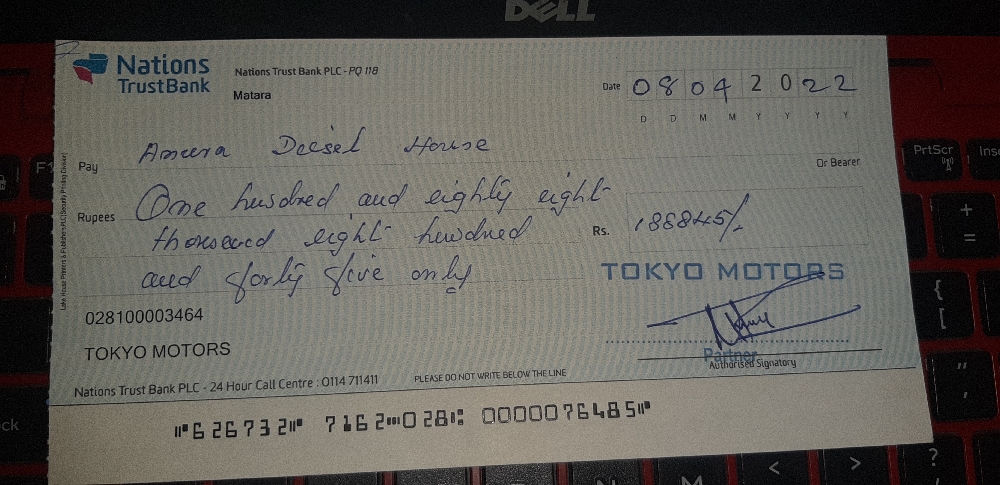 DELL
Nations
TrustBank
Nations Trust Bank PLC - PQ 118
Matara
Date 08 04 2022
D D M M Y Y Y Y
Pay Ameera Deisel House
Or Bearer
Rupees One hundred and eighty eight
thousand eight hundred
and forty five only
Rs. 188845/-
TOKYO MOTORS
028100003464
TOKYO MOTORS
Partner
Authorised Signatory
Nations Trust Bank PLC - 24 Hour Call Centre : 0114 711411
PLEASE DO NOT WRITE BELOW THE LINE
⑈626732⑈ 7162⑉028⑆ 0000076485⑈
PrtScr
Ins
F1
+
=
{
[
"
'
ck
<
>
?
N
M